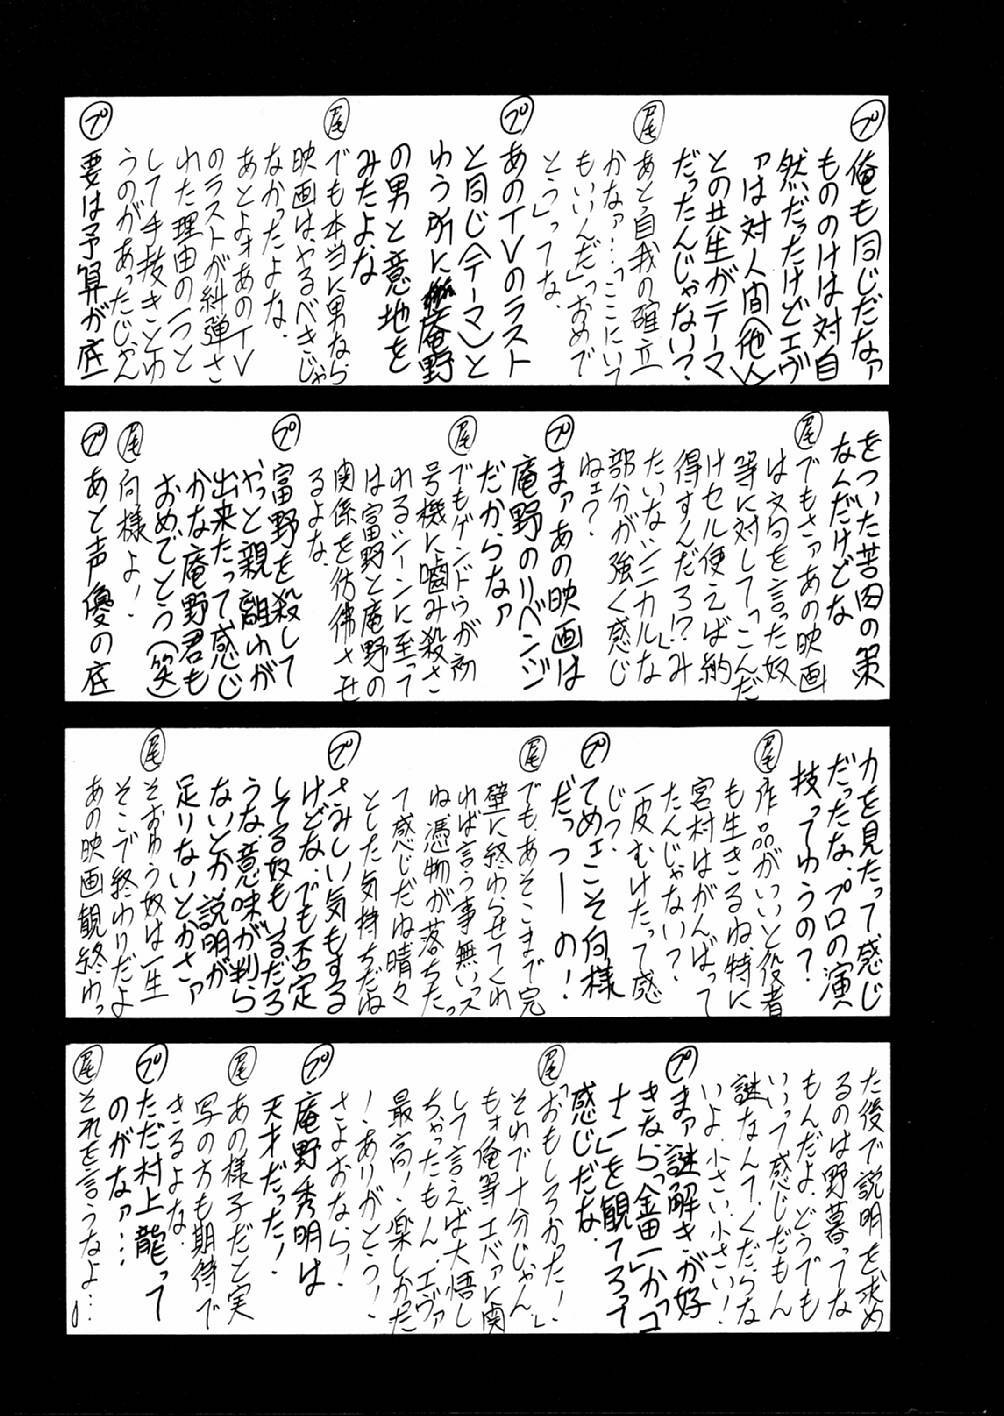 プ 俺も同じだなァ
もののけは対自
然だったけどエヴ
ァは対人間(他人)
との共生がテーマ
だったんじゃない?
尾 あと自我の確立
かなァ…「ここにいて
もいいんだ」「おめで
とう」ってな、
プ あのTVのラスト
と同じ(テーマ)と
ゆう所に庵野
の男と意地を
みたよな
尾 でも本当に男なら
映画は、やるべきじゃ
なかったよな、
あとよォあのTV
のラストが糾弾さ
れた理由の一つと
して手抜きとゆ
うのがあったじゃん
プ 要は予算が底
をついた苦肉の策
なんだけどな
尾 でもさァあの映画
は文句を言った奴
等に対して「こんだ
けセル使えば納
得すんだろ!?」み
たいなシニカルな
部分が強く感じ
ねェ?
プ まァあの映画は
庵野のリベンジ
だからなァ
尾 でもゲンドウが初
号機に噛み殺さ
れるシーンに至って
は富野と庵野の
関係を彷彿させ
るよな、
プ 富野を殺して
やっと親離れが
出来たって感じ
かな庵野君も
おめでとう(笑)
尾 向様よ!
プ あと声優の底
力を見たって感じ
だったな、プロの演
技ってゆうの?
尾 作品がいいと役者
も生きるね、特に
宮村はがんばって
たんじゃない?
一皮むけたって感
じっ、
プ てめェこそ何様
だっつーの!
尾 でも、あそこまで完
璧に終わらせてくれ
れば言う事無いっス
ね、憑物が落ちたっ
て感じだね晴々
とした気持ちだね
プ さみしい気もする
けどな、でも否定
してる奴もいるだろ
うな、意味が判ら
ないとか、説明が
足りないとかさァ
尾 そおゆう奴は一生
そこで終わりだよ
あの映画観終わっ
た後で説明を求め
るのは野暮ってな
もんだよ、どうでも
いいって感じだもん
謎なんて、くだらな
いよ、小さい小さい!
プ まァ謎解きが好
きなら「金田一」か「コ
ナン」を観てろって
感じだな
尾 「おもしろかった!」
それで十分じゃん
もォ俺等エバァに関
して言えば大悟し
ちゃったもん、エヴァ
最高!、楽しかった
!、ありがとう!、
さよおなら?、
プ 庵野秀明は
天才だった!
尾 あの様子だと実
写の方も期待で
きるよな、
プ ただ村上龍って
のがなァ…
尾 それを言うなよ…